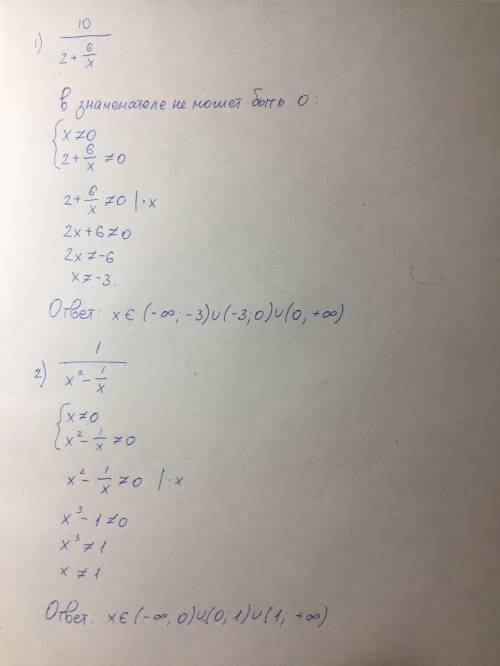 1) 10 / (2 + 6/x)
в знаменателе не может быть 0 :
{ x ≠ 0
2 + 6/x ≠ 0
2 + 6/x ≠ 0 | · x
2x + 6 ≠ 0
2x ≠ -6
x ≠ -3.
Ответ: x ∈ (-∞; -3) ∪ (-3; 0) ∪ (0; +∞)
2) 1 / (x² - 1/x)
{ x ≠ 0
x² - 1/x ≠ 0
x² - 1/x ≠ 0 | · x
x³ - 1 ≠ 0
x³ ≠ 1
x ≠ 1
Ответ: x ∈ (-∞, 0) ∪ (0; 1) ∪ (1; +∞)